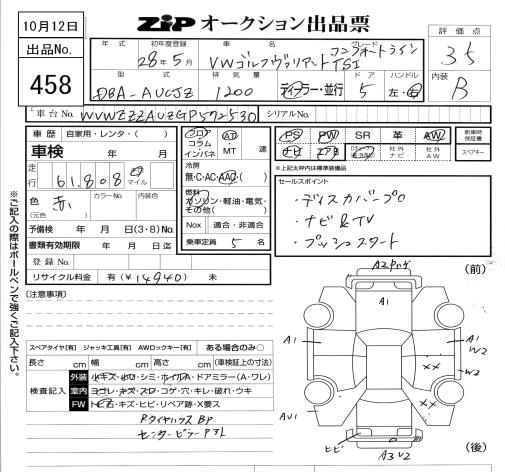 10月12日
ZIP オークション出品票
出品No.
458
年式
初年度登録
28年5月
車名
VWゴルフヴァリアント
グレード
コンフォートライン
TSI
評価点
3.5
型式
DBA-AUCJZ
排気量
1200
ディーラー・並行
ドア
5
ハンドル
左・右
内装
B
車台No.
WVWZZZAUZGP572530
シリアルNo.
車歴 自家用・レンタ・( )
車検 年 月
走行
61,808
マイル
色
赤
(元色)
カラーNo.
内装色
予備検 年 月 日(3・8)No.
書類有効期限 年 月 日迄
登録No.
リサイクル料金 有(¥14940) 未
フロア
コラム
インパネ
AT
MT
速
冷房
無・C・AC・AAC・( )
燃料
ガソリン・軽油・電気・
その他( )
Nox 適合・非適合
乗車定員 5 名
PS PW SR 革 AW
ナビ エアB
社外ナビ
社外AW
新車時保証書
スペアキー
*上記太枠内は標準装備品
セールスポイント
・ディスカバープロ
・ナビ&TV
・プッシュスタート
※ご記入の際はボールペンで強くご記入下さい。
(注意事項)
スペアタイヤ[有] ジャッキ工具[有] AWロックキー[有] ある場合のみ○
長さ cm 幅 cm 高さ cm (車検証上の寸法)
検査記入
外装 小キズ・凹・シミ・ホイルA・ドアミラー(A・ワレ)
室内 ヨゴレ・キズ・スレ・コゲ・穴・キレ・破れ・ウキ
FW トビ石・キズ・ヒビ・リペア跡・X要ス
RタイヤハウスBP
センターピラー
(前)
A1
A1
A1
W2
W2
XX
XX
AU1
ヒビ
A3 U2
(後)